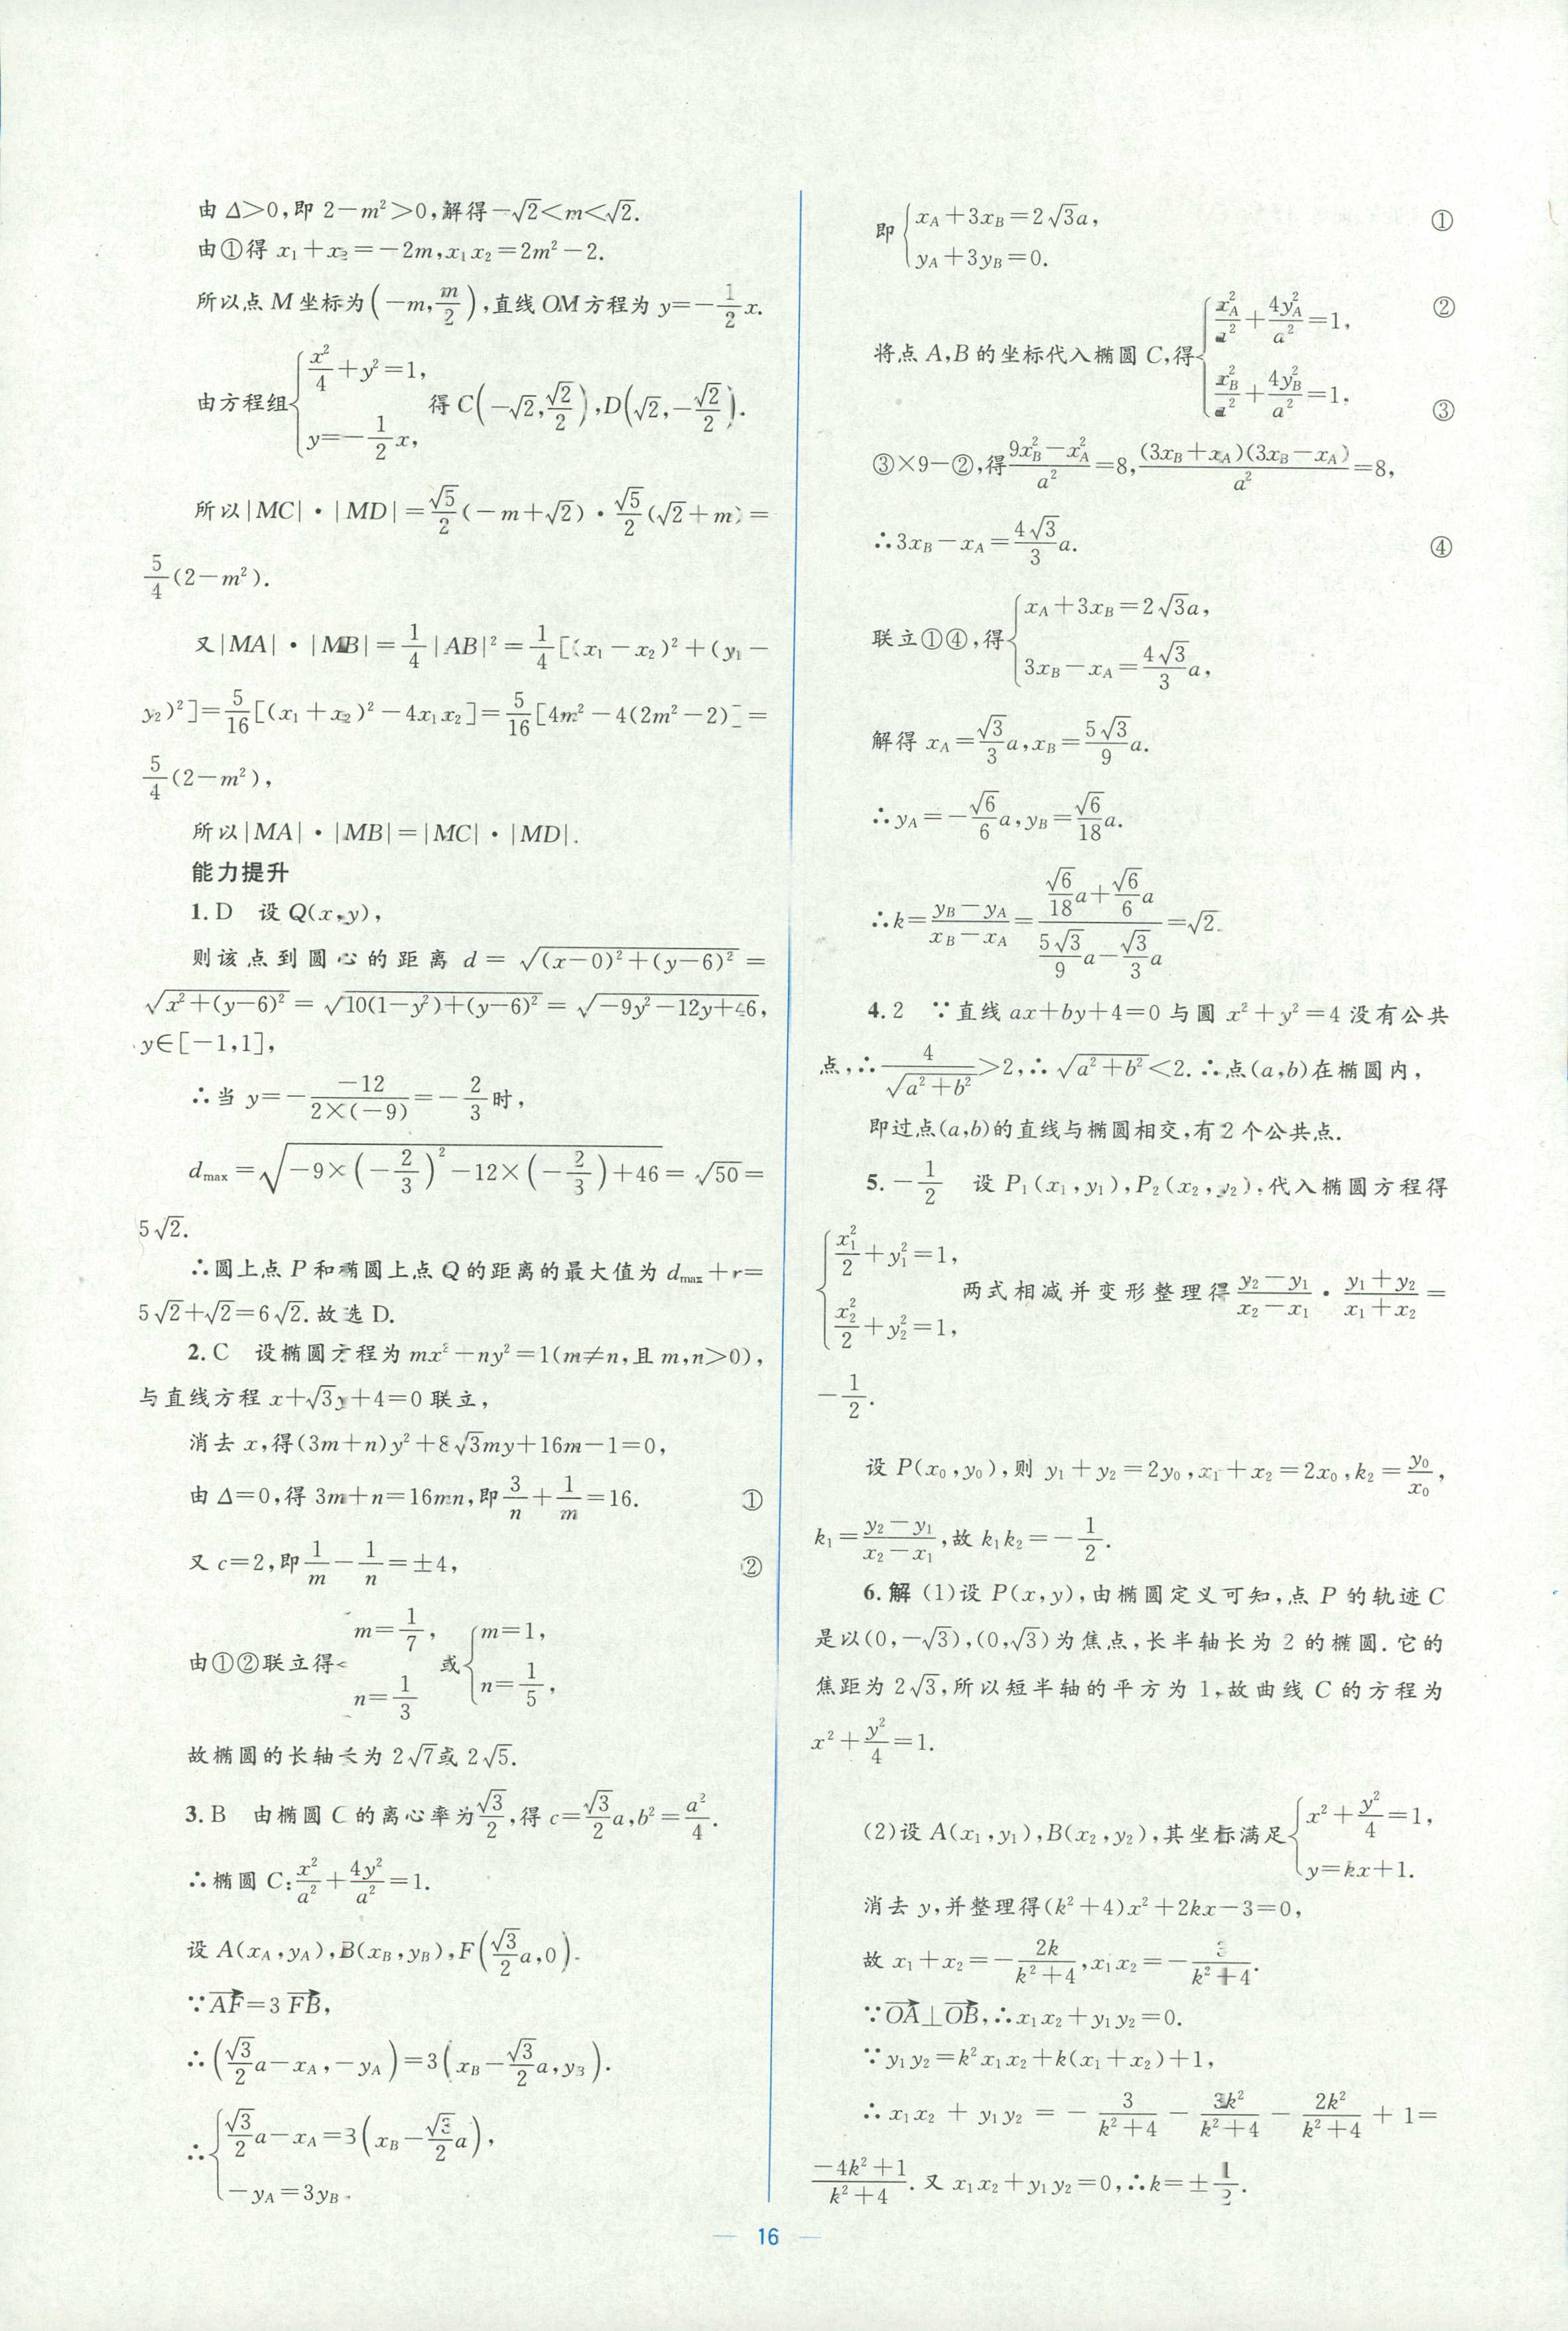 由 Δ>0,即 2-m²>0,解得-√2<m<√2.
由①得 x₁+x₂=-2m,x₁x₂=2m²-2.
所以点 M 坐标为(-m,m/2),直线 OM 方程为 y=-1/2 x.
由方程组{x²/4+y²=1, y=-1/2 x, 得 C(-√2,√2/2),D(√2,-√2/2).
所以|MC|·|MD|=√5/2(-m+√2)·√5/2(√2+m)=
5/4(2-m²).
又|MA|·|MB|=1/4|AB|²=1/4[(x₁-x₂)²+(y₁-
y₂)²]=5/16[(x₁+x₂)²-4x₁x₂]=5/16[4m²-4(2m²-2)]=
5/4(2-m²),
所以|MA|·|MB|=|MC|·|MD|.
能力提升
1.D 设 Q(x,y),
则该点到圆心的距离 d=√((x-0)²+(y-6)²)=
√(x²+(y-6)²)=√(10(1-y²)+(y-6)²)=√(-9y²-12y+46),
y∈[-1,1],
∴当 y=-(-12)/(2×(-9))=-2/3时,
d_max=√(-9×(-2/3)²-12×(-2/3)+46)=√50=
5√2.
∴圆上点 P 和椭圆上点 Q 的距离的最大值为 d_max+r=
5√2+√2=6√2.故选 D.
2.C 设椭圆方程为 mx²+ny²=1(m≠n,且 m,n>0),
与直线方程 x+√3y+4=0 联立,
消去 x,得(3m+n)y²+8√3my+16m-1=0,
由 Δ=0,得 3m+n=16mn,即3/n+1/m=16. ①
又 c=2,即1/m-1/n=±4, ②
由①②联立得{m=1/7, n=1/3 或{m=1, n=1/5,
故椭圆的长轴长为 2√7或 2√5.
3.B 由椭圆 C 的离心率为√3/2,得 c=√3/2 a,b²=a²/4.
∴椭圆 C:x²/a²+4y²/a²=1.
设 A(x_A,y_A),B(x_B,y_B),F(√3/2 a,0).
∵AF→=3 FB→,
∴(√3/2 a-x_A,-y_A)=3(x_B-√3/2 a,y_B).
∴{√3/2 a-x_A=3(x_B-√3/2 a), -y_A=3y_B.
即{x_A+3x_B=2√3a, ① y_A+3y_B=0.
将点 A,B 的坐标代入椭圆 C,得{x_A²/a²+4y_A²/a²=1, ② x_B²/a²+4y_B²/a²=1. ③
③×9-②,得(9x_B²-x_A²)/a²=8,(3x_B+x_A)(3x_B-x_A)/a²=8,
∴3x_B-x_A=4√3/3 a. ④
联立①④,得{x_A+3x_B=2√3a, 3x_B-x_A=4√3/3 a,
解得 x_A=√3/3 a,x_B=5√3/9 a.
∴y_A=-√6/6 a,y_B=√6/18 a.
∴k=(y_B-y_A)/(x_B-x_A)=(√6/18 a+√6/6 a)/(5√3/9 a-√3/3 a)=√2.
4.2 ∵直线 ax+by+4=0 与圆 x²+y²=4 没有公共
点,∴4/√(a²+b²)>2,∴√(a²+b²)<2.∴点(a,b)在椭圆内,
即过点(a,b)的直线与椭圆相交,有 2 个公共点.
5.-1/2 设 P₁(x₁,y₁),P₂(x₂,y₂),代入椭圆方程得
{x₁²/2+y₁²=1, x₂²/2+y₂²=1, 两式相减并变形整理得(y₂-y₁)/(x₂-x₁)·(y₁+y₂)/(x₁+x₂)=
-1/2.
设 P(x₀,y₀),则 y₁+y₂=2y₀,x₁+x₂=2x₀,k₂=y₀/x₀,
k₁=(y₂-y₁)/(x₂-x₁),故 k₁k₂=-1/2.
6.解 (1)设 P(x,y),由椭圆定义可知,点 P 的轨迹 C
是以(0,-√3),(0,√3)为焦点,长半轴长为 2 的椭圆.它的
焦距为 2√3,所以短半轴的平方为 1,故曲线 C 的方程为
x²+y²/4=1.
(2)设 A(x₁,y₁),B(x₂,y₂),其坐标满足{x²+y²/4=1, y=kx+1.
消去 y,并整理得(k²+4)x²+2kx-3=0,
故 x₁+x₂=-2k/(k²+4),x₁x₂=-3/(k²+4).
∵OA→⊥OB→,∴x₁x₂+y₁y₂=0.
∵y₁y₂=k²x₁x₂+k(x₁+x₂)+1,
∴x₁x₂+y₁y₂=-3/(k²+4)-3k²/(k²+4)-2k²/(k²+4)+1=
(-4k²+1)/(k²+4).又 x₁x₂+y₁y₂=0,∴k=±1/2.
16